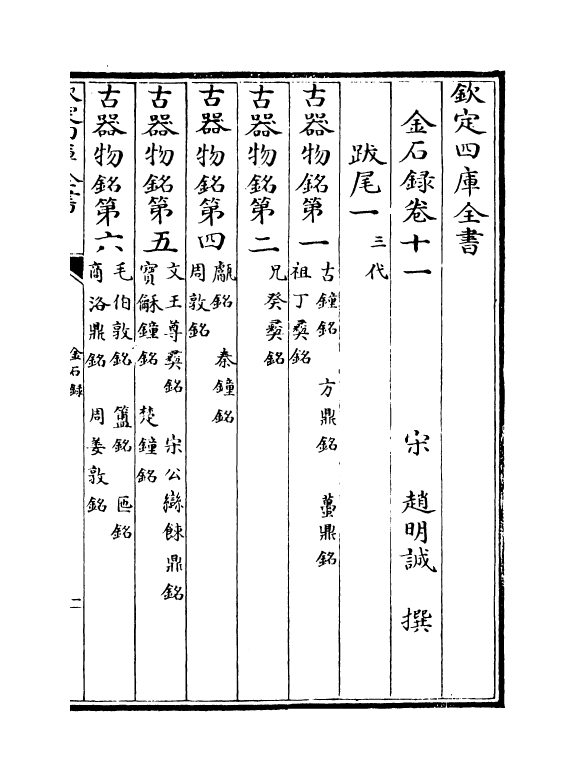 欽定四庫全書
金石録卷十一　宋　趙明誠　撰
跋尾一　三代
古器物銘第一　古鐘銘　方鼎銘　蠆鼎銘
祖丁彝銘
古器物銘第二　兄癸彝銘
古器物銘第四　甗銘　秦鐘銘
周敦銘
古器物銘第五　文王尊彝銘　宋公䜌餗鼎銘
寳龢鐘銘　楚鐘銘
古器物銘第六　毛伯敦銘　簠銘　匜銘
商洛鼎銘　周姜敦銘
欽定四庫全書
金石録
二